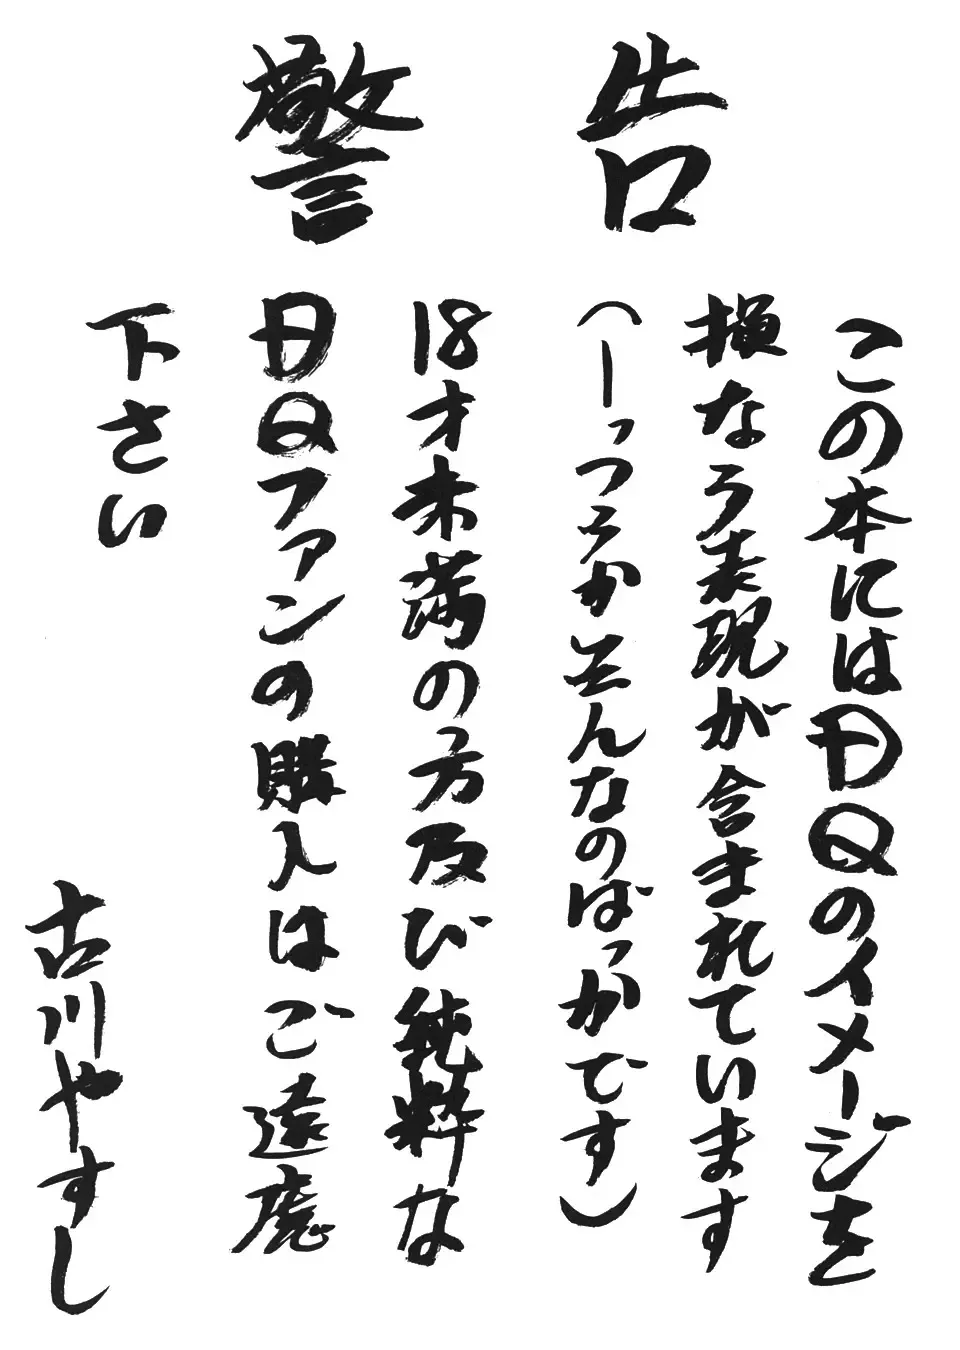 警告
この本にはDQのイメージを
損なう表現が含まれています
(―っつうかそんなのばっかです)
18才未満の方及び純粋な
DQファンの購入はご遠慮
下さい
古川やすし